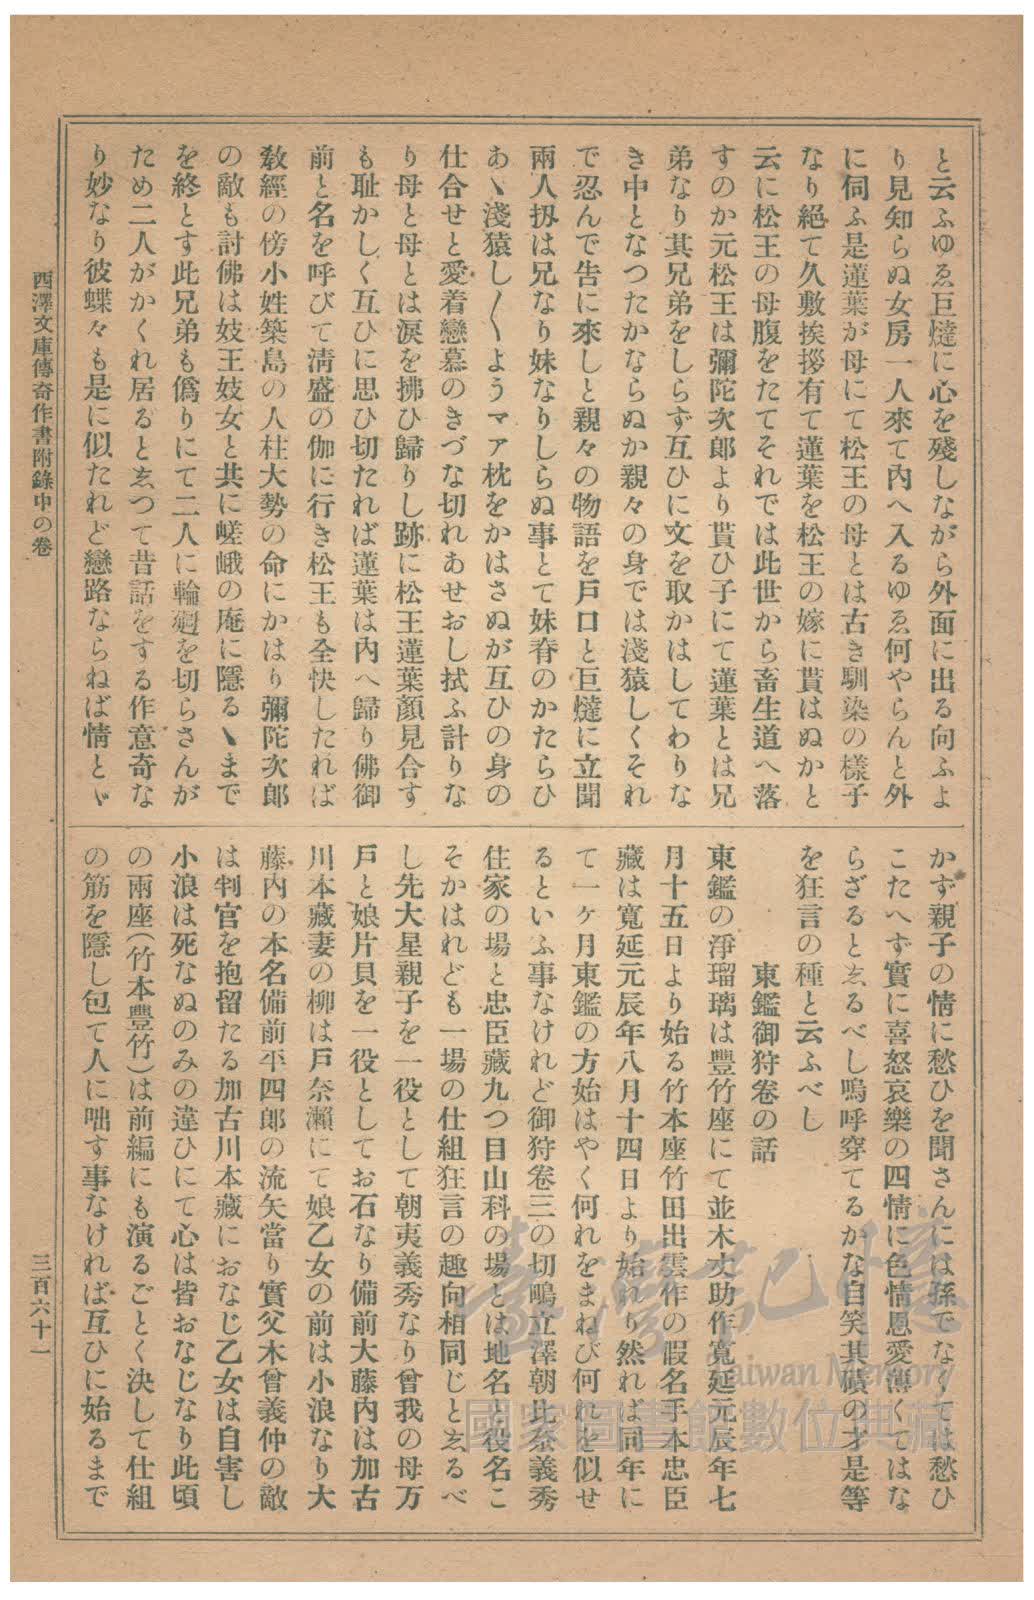 と云ふゆゑ巨燵に心を殘しながら外面に出る向ふよ
り見知らぬ女房一人來て内へ入るゆゑ何やらんと外
に伺ふ是蓮葉が母にて松王の母とは古き馴染の樣子
なり絕て久敷挨拶有て蓮葉を松王の嫁に貰はぬかと
云に松王の母腹をたてそれでは此世から畜生道へ落
すのか元松王は彌陀次郎より貰ひ子にて蓮葉とは兄
弟なり其兄弟をしらず互ひに文を取かはしてわりな
き中となつたかならぬか親々の身では淺猿しくそれ
で忍んで告に來しと親々の物語を戸口と巨燵に立聞
兩人扨は兄なり妹なりしらぬ事とて妹脊のかたらひ
あゝ淺猿し〱ようマア枕をかはさぬが互ひの身の
仕合せと愛着戀慕のきづな切れあせおし拭ふ計りな
り母と母とは淚を拂ひ歸りし跡に松王蓮葉顏見合す
も耻かしく互ひに思ひ切たれば蓮葉は内へ歸り佛御
前と名を呼びて淸盛の伽に行き松王も全快したれば
敎經の傍小姓築島の人柱大勢の命にかはり彌陀次郎
の敵も討佛は妓王妓女と共に嵯峨の庵に隱るゝまで
を終とす此兄弟も僞りにて二人に輪廻を切らさんが
ため二人がかくれ居るとゑつて昔話をする作意奇な
り妙なり彼蝶々も是に似たれど戀路ならねば情とゞ
かず親子の情に愁ひを聞さんには孫でなくては愁ひ
こたへず實に喜怒哀樂の四情に色情恩愛薄くてはな
らざるとゑるべし嗚呼穿てるかな自笑其磧の才是等
を狂言の種と云ふべし
東鑑御狩卷の話
東鑑の淨瑠璃は豐竹座にて並木丈助作寬延元辰年七
月十五日より始る竹本座竹田出雲作の假名手本忠臣
藏は寬延元辰年八月十四日より始れり然れば同年に
て一ヶ月東鑑の方始はやく何れをまねび何れを似せ
るといふ事なけれど御狩卷三の切鴫立澤朝比奈義秀
住家の場と忠臣藏九つ目山科の場とは地名と役名こ
そかはれども一場の仕組狂言の趣向相同じとゑるべ
し先大星親子を一役として朝夷義秀なり曾我の母万
戸と娘片貝を一役としてお石なり備前大藤内は加古
川本藏妻の柳は戸奈瀨にて娘乙女の前は小浪なり大
藤内の本名備前平四郎の流矢當り實父木曾義仲の敵
は判官を抱留たる加古川本藏におなじ乙女は自害し
小浪は死なぬのみの違ひにて心は皆おなじなり此頃
の兩座(竹本豐竹)は前編にも演るごとく決して仕組
の筋を隱し包て人に咄す事なければ互ひに始るまで
西澤文庫傳奇作書附錄中の卷
三百六十一
臺灣記憶
Taiwan Memory
國家圖書館數位典藏